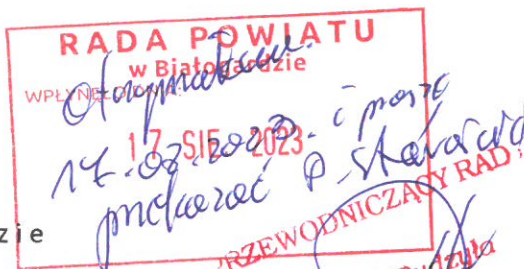 RADA POWIATU
w Białogardzie
WPŁYNĘŁO DNIA
Otrzymałem.
17 SIE. 2023
17.08.2023. i proszę
przekazać P. Staroście
PRZEWODNICZĄCY RADY
zie